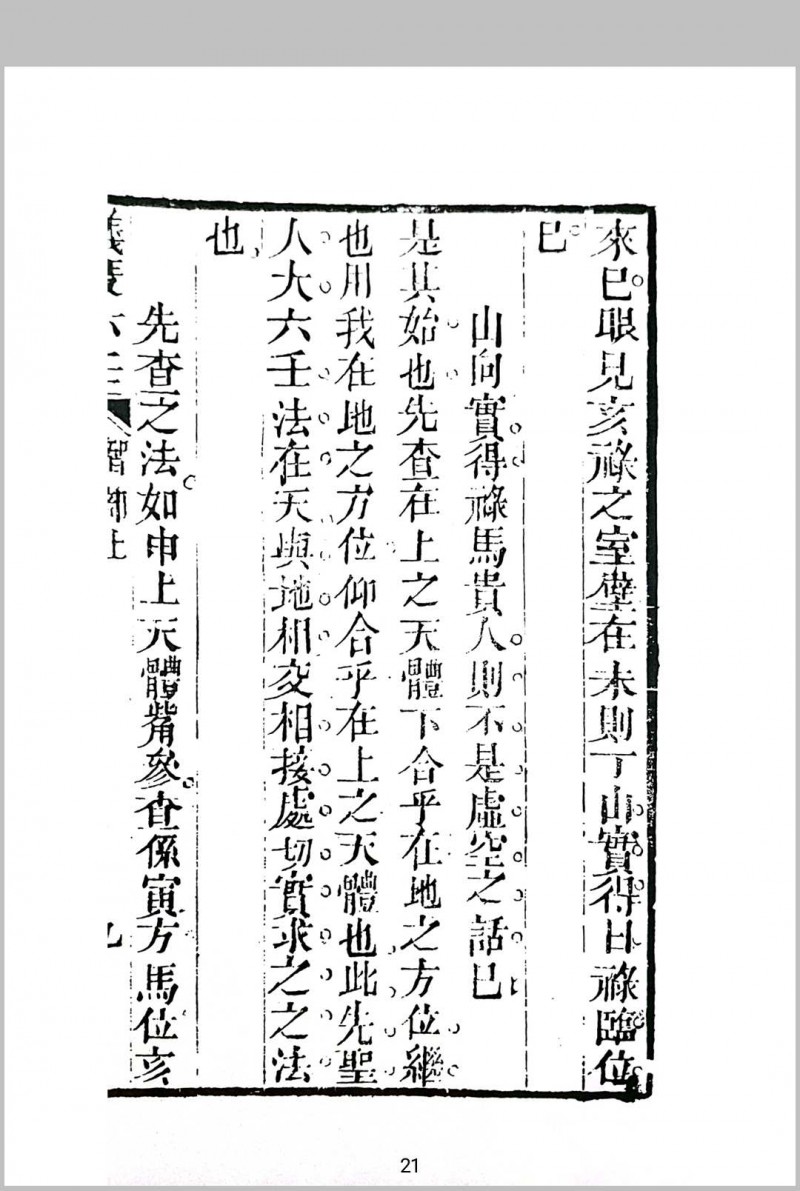 來巳眼見亥祿之室壁在未則丁山實得日祿臨位
巳
山向實得祿馬貴人則不是虛空之話巳
是其始也先查在上之天體下合乎在地之方位繼
也用我在地之方位仰合乎在上之天體也此先聖
人大六壬法在天與地相交相接處切實求之之法
也
先查之法如申上天體觜參查係寅方馬位亥
六壬
21